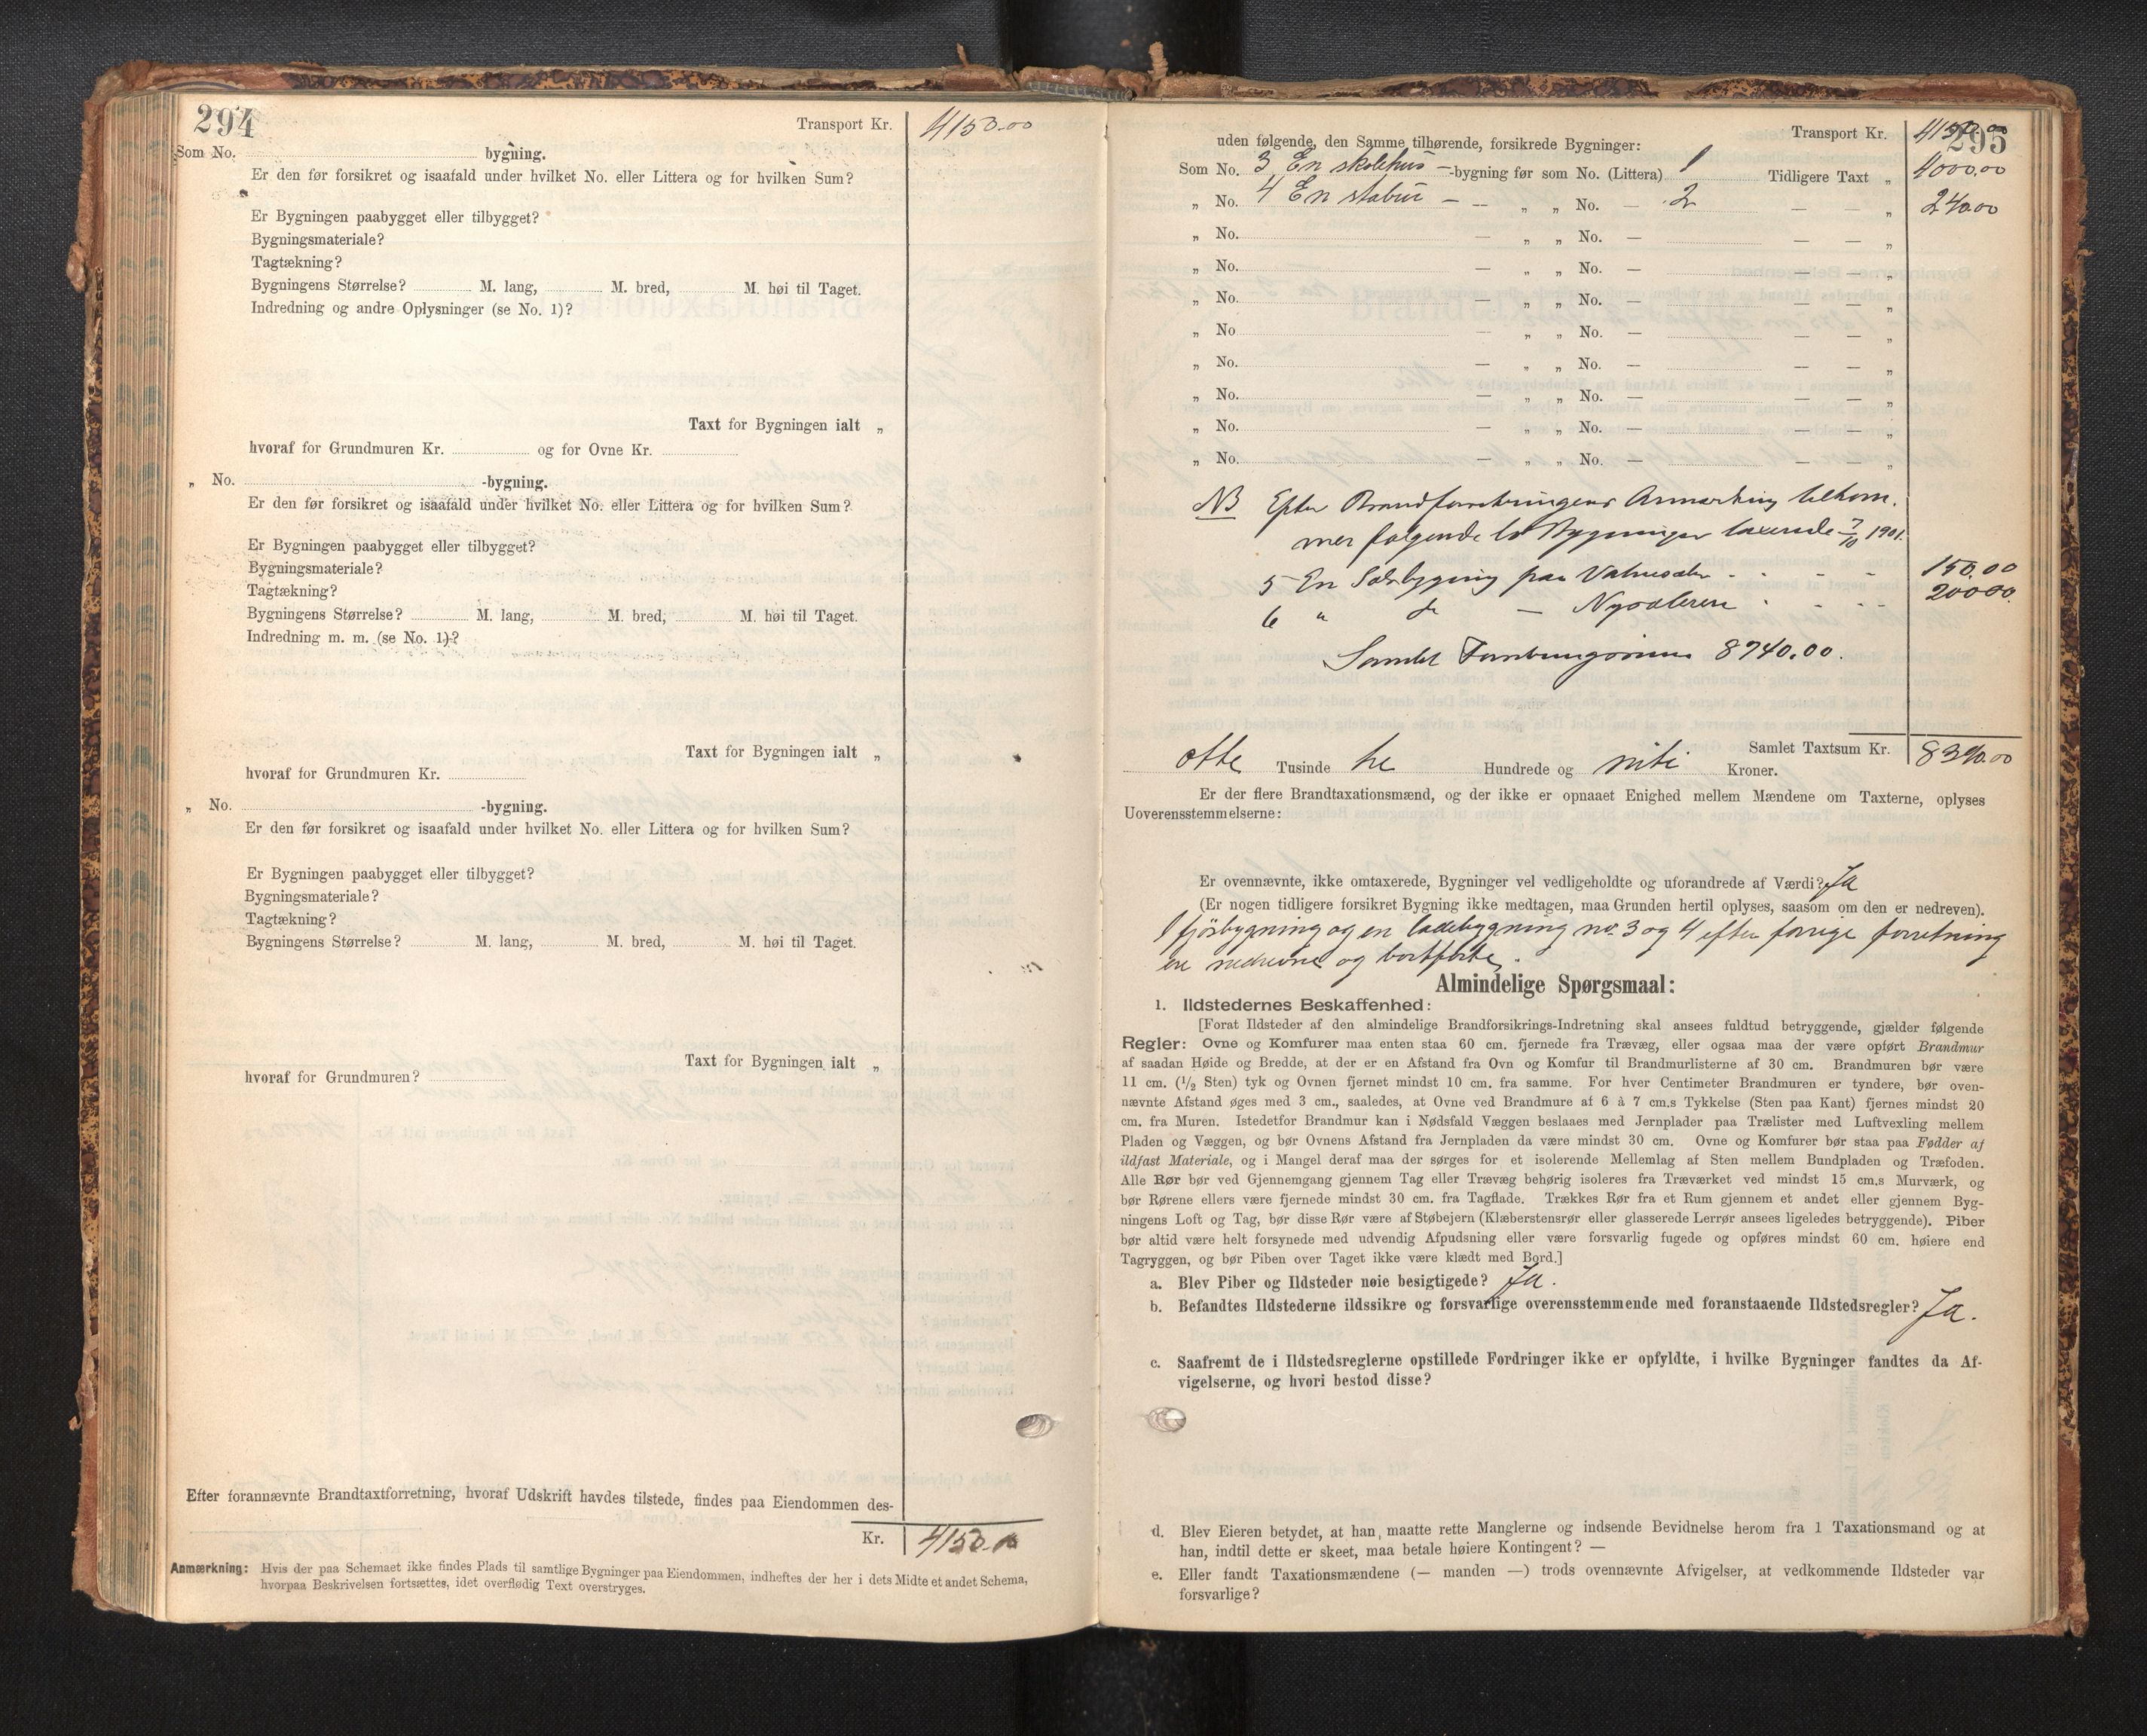 294
Transport Kr. 4150.00
Som No. bygning.
Er den før forsikret og isaafald under hvilket No. eller Littera og for hvilken Sum?
Er Bygningen paabygget eller tilbygget?
Bygningsmateriale?
Tagtækning?
Bygningens Størrelse? M. lang, M. bred, M. høi til Taget.
Indredning og andre Oplysninger (se No. 1)?
Taxt for Bygningen ialt „
hvoraf for Grundmuren Kr. og for Ovne Kr.
„ No. -bygning.
Er den før forsikret og isaafald under hvilket No. eller Littera og for hvilken Sum?
Er Bygningen paabygget eller tilbygget?
Bygningsmateriale?
Tagtækning?
Bygningens Størrelse? M. lang, M. bred, M. høi til Taget.
Indredning m. m. (se No. 1)?
Taxt for Bygningen ialt „
hvoraf for Grundmuren Kr.
„ No. -bygning.
Er den før forsikret og isaafald under hvilket No. eller Littera og for hvilken Sum?
Er Bygningen paabygget eller tilbygget?
Bygningsmateriale?
Tagtækning?
Bygningens Størrelse? M. lang, M. bred, M. høi til Taget.
Taxt for Bygningen ialt „
hvoraf for Grundmuren?
Efter forannævnte Brandtaxtforretning, hvoraf Udskrift havdes tilstede, findes paa Eiendommen des-
Kr. 4150.00
Anmærkning: Hvis der paa Schemaet ikke findes Plads til samtlige Bygninger paa Eiendommen, indheftes der her i dets Midte et andet Schema,
hvorpaa Beskrivelsen fortsættes, idet overflødig Text overstryges.
295
Transport Kr. 4150.00
uden følgende, den Samme tilhørende, forsikrede Bygninger:
Som No. 3 En skolehus - -bygning før som No. (Littera) 1 Tidligere Taxt „ 4000.00
„ No. 4 En stabur - — „ „ No. — 2 — — „ 240.00
„ No. — „ „ No. — — — „
„ No. — „ „ No. — — — „
„ No. — „ „ No. — — — „
„ No — „ „ No. — — — „
„ No. — „ „ No. — — — „
„ No. — „ „ No. — — — „
„ No. — „ „ No. — — — „
„ No. — „ „ No. — — — „
NB Efter Brandforsikringens Anmærkning tilkom-
mer følgende to Bygninger taxerede 7/10 1901.
5 En Sælsbygning paa 150.00
6 " do — 200.00
Samlet Forsikringssum 8740.00.
Samlet Taxtsum Kr. 8390.00
otte Tusinde tre Hundrede og niti Kroner.
Er der flere Brandtaxationsmænd, og der ikke er opnaaet Enighed mellem Mændene om Taxterne, oplyses
Uoverensstemmelserne:
Er ovennævnte, ikke omtaxerede, Bygninger vel vedligeholdte og uforandrede af Værdi? Ja
(Er nogen tidligere forsikret Bygning ikke medtagen, maa Grunden hertil oplyses, saasom om den er nedreven).
1 fjøsbygning og en ladebygning no. 3 og 4 efter forrige forretning
ere nedrevne og bortførte.
Almindelige Spørgsmaal:
1. Ildstedernes Beskaffenhed:
[Forat Ildsteder af den almindelige Brandforsikrings-Indretning skal ansees fuldtud betryggende, gjælder følgende
Regler: Ovne og Komfurer maa enten staa 60 cm. fjernede fra Trævæg, eller ogsaa maa der være opført Brandmur
af saadan Høide og Bredde, at der er en Afstand fra Ovn og Komfur til Brandmurlisterne af 30 cm. Brandmuren bør være
11 cm. (1/2 Sten) tyk og Ovnen fjernet mindst 10 cm. fra samme. For hver Centimeter Brandmuren er tyndere, bør oven-
nævnte Afstand øges med 3 cm., saaledes, at Ovne ved Brandmure af 6 à 7 cm.s Tykkelse (Sten paa Kant) fjernes mindst 20
cm. fra Muren. Istedetfor Brandmur kan i Nødsfald Væggen beslaaes med Jernplader paa Trælister med Luftvexling mellem
Pladen og Væggen, og bør Ovnens Afstand fra Jernpladen da være mindst 30 cm. Ovne og Komfurer bør staa paa Fødder af
ildfast Materiale, og i Mangel deraf maa der sørges for et isolerende Mellemlag af Sten mellem Bundpladen og Træfoden.
Alle Rør bør ved Gjennemgang gjennem Tag eller Trævæg behørig isoleres fra Træværket ved mindst 15 cm.s Murværk, og
bør Rørene ellers være fjernede mindst 30 cm. fra Tagflade. Trækkes Rør fra et Rum gjennem et andet eller gjennem Byg-
ningens Loft og Tag, bør disse Rør være af Støbejern (Klæberstensrør eller glasserede Lerrør ansees ligeledes betryggende). Piber
bør altid være helt forsynede med udvendig Afpudsning eller være forsvarlig fugede og opføres mindst 60 cm. høiere end
Tagryggen, og bør Piben over Taget ikke være klædt med Bord.]
a. Blev Piber og Ildsteder nøie besigtigede? Ja.
b. Befandtes Ildstederne ildssikre og forsvarlige overensstemmende med foranstaaende Ildstedsregler? Ja.
c. Saafremt de i Ildstedsreglerne opstillede Fordringer ikke er opfyldte, i hvilke Bygninger fandtes da Af-
vigelserne, og hvori bestod disse?
d. Blev Eieren betydet, at han maatte rette Manglerne og indsende Bevidnelse herom fra 1 Taxationsmand og at
han, indtil dette er skeet, maa betale høiere Kontingent? —
e. Eller fandt Taxationsmændene (— manden —) trods ovennævnte Afvigelser, at vedkommende Ildsteder var
forsvarlige?